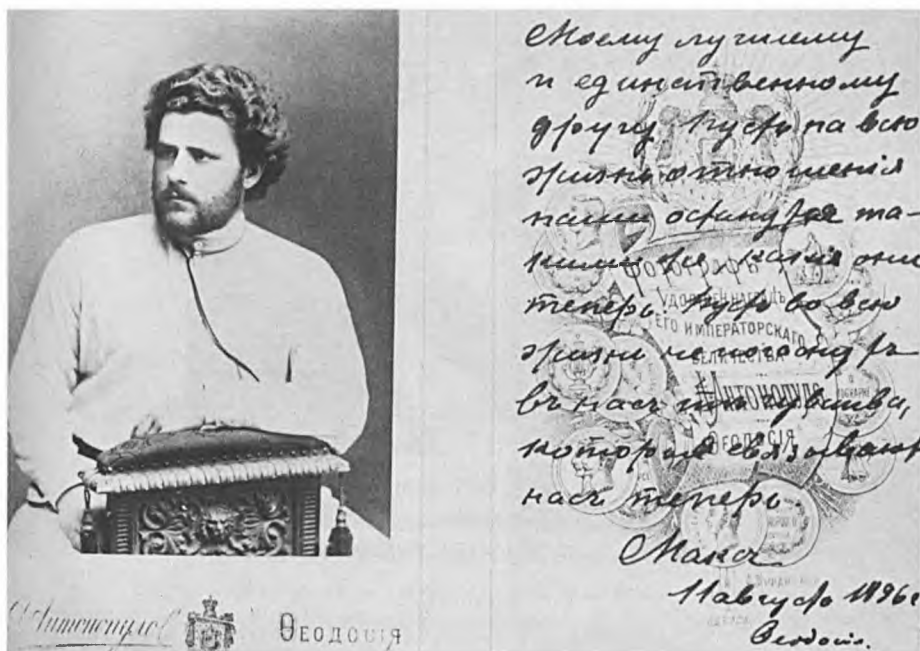 Антонопуло
Ѳеодосія
Моему лучшему
и единственному
другу. Пусть на всю
жизнь отношенія
наши останутся та-
кими же какія они
теперь. Пусть во всю
жизни не погаснутъ
въ насъ тѣ чувства,
которыя связываютъ
насъ теперь
Максъ
11 августа 1896 г
Ѳеодосія.
Фотографъ
удостоенъ наградъ
ЕГО ИМПЕРАТОРСКАГО
ВЕЛИЧЕСТВА
Антонопуло
Ѳеодосія